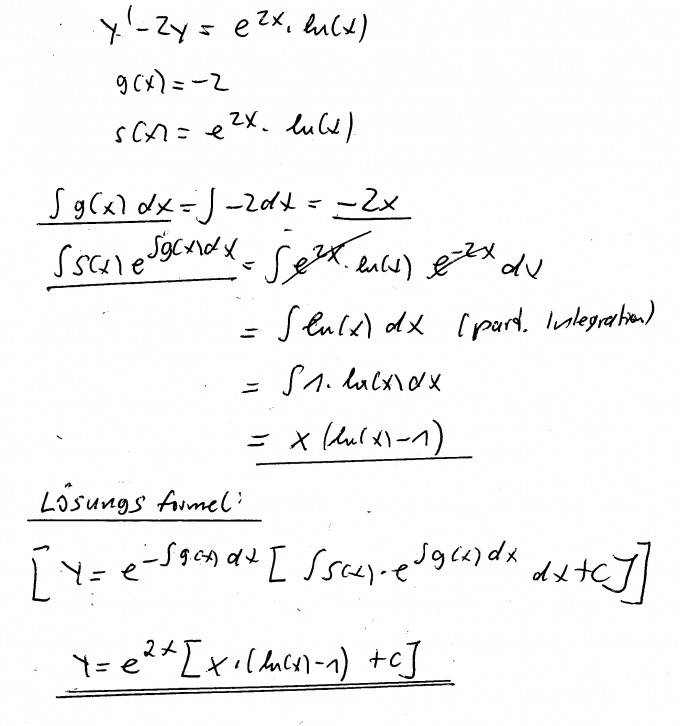 y' - 2y = e^{2x} · ln(x)
g(x) = -2
s(x) = e^{2x} · ln(x)
∫ g(x) dx = ∫ -2 dx = -2x
∫ s(x) e^{∫g(x)dx} = ∫ e^{2x} · ln(x) e^{-2x} dx
= ∫ ln(x) dx (part. Integration)
= ∫ 1 · ln(x) dx
= x (ln(x) - 1)
Lösungsformel:
[ y = e^{-∫g(x) dx} [ ∫ s(x) · e^{∫g(x) dx} dx + C ] ]
y = e^{2x} [ x · (ln(x) - 1) + C ]